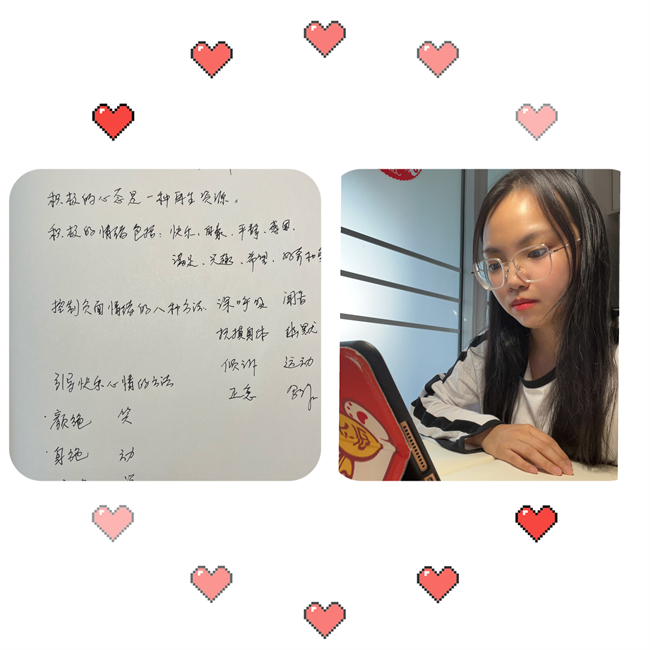 积极的心态是一种再生资源。
积极的情绪包括：快乐、自豪、平静、感恩、
满足、兴趣、希望、
控制负面情绪的八种方法 深呼吸 闻香
抚摸身体 幽默
倾诉 运动
引导快乐心情的方法 正念
·颜艳 笑
·身艳 动